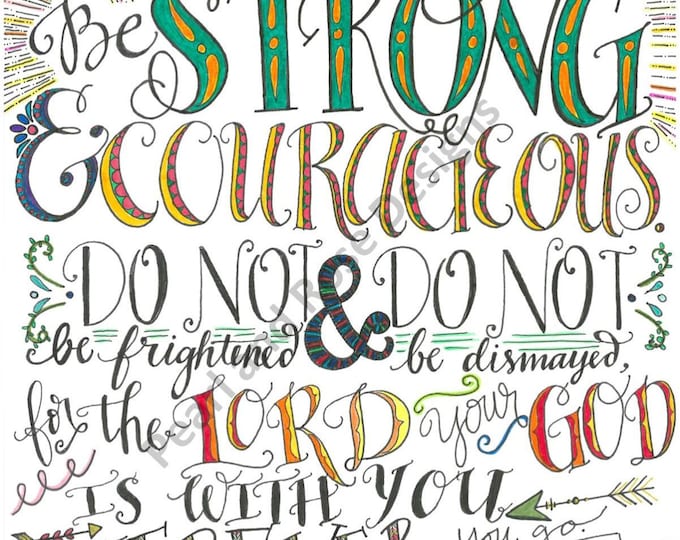 Be STRONG
& COURAGEOUS.
DO NOT & DO NOT
be frightened be dismayed,
for the LORD your GOD
IS WITH YOU
you go.
Pearl and Rose Designs